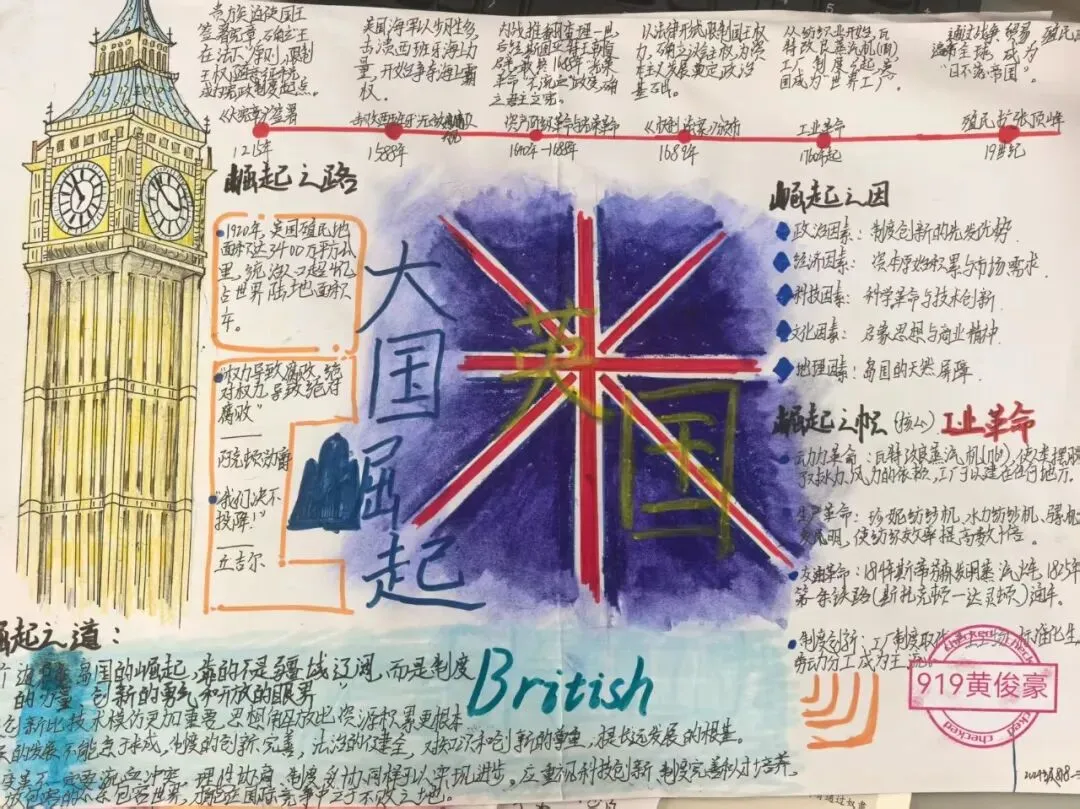 贵族迫使国王
签署宪章，确立
王在法下原则，限制
王权，
成为宪政制度起点。
英国海军以少胜多，
击溃西班牙海上力
量，开始争夺海上霸
权。
以法律形式限制国王权
力，确立议会主权，为资
本主义发展奠定政治
基础。
从纺织业开始，瓦
特改良蒸汽机(图)
工厂制度兴起，英
国成为"世界工厂。
通过战争、贸易、殖民
遍布全球，成为
"日不落帝国"。
《大宪章》签署
击败西班牙无敌舰队
资产阶级革命与光荣革命
《权利法案》颁布
工业革命
殖民扩张顶峰
1215年
1588年
1640年-1688年
1689年
1760年起
19世纪
崛起之路
1920年，英国殖民地
面积达3400万平方公
里，统治人口超4亿
占世界陆地面积
年。
"权力导致腐败，绝
对权力导致绝对
腐败"
——
阿克顿勋爵
"我们决不
投降！"
——
丘吉尔
大国崛起
英国
崛起之因
政治因素：制度创新的先发优势.
经济因素：资本原始积累与市场需求.
科技因素：科学革命与技术创新.
文化因素：启蒙思想与商业精神.
地理因素：岛国的天然屏障.
崛起之帜(核心) 工业革命
动力革命：瓦特改良蒸汽机(图)，使人类摆脱
了对水力、风力的依赖，工厂可以建在任何地方.
生产革命：珍妮纺纱机、水力纺纱机、骡机
发明，使纺纱效率提高数十倍。
交通革命：1814年斯蒂芬森发明蒸汽火车，1825年
第一条铁路(斯托克顿—达灵顿)通车.
制度创新：工厂制度取代手工工场，标准化生
劳动分工成为主流.
919黄俊豪
checked
checked
崛起之道：
岛国的崛起，靠的不是疆域辽阔，而是制度
的力量、创新的勇气和开放的眼界
创新比技术模仿更加重要，思想解放比资源积累更根本
的发展不能急于求成，制度的创新完善，法治的健全，对知识和创新的尊重，才是长远发展的根基.
变革不一定要流血冲突，理性协商，制度妥协同样可以实现进步。应重视科技创新、制度完善和人才培养，
包容世界，才能在国际竞争中立于不败之地.
British